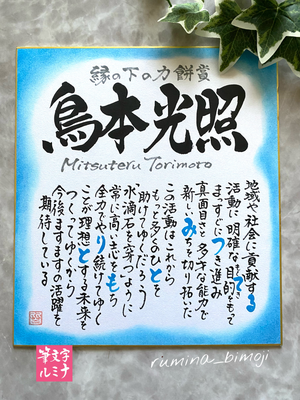 縁の下の力餅賞
鳥本光照
Mitsuteru Torimoto
地域や社会に貢献する
活動に明確な目的をもって
まっすぐにつき進み
真面目さと多才な能力で
新しいみちを切り拓いた
この活動はこれから
もっと多くのひとを
助けてゆくだろう
水滴石を穿つように
常に高い志をもち
全力でやり続けてゆく
ことが理想とする未来を
つくってゆくから
今後ますますの活躍を
期待している。
筆文字
ルミナ
rumina_bimoji